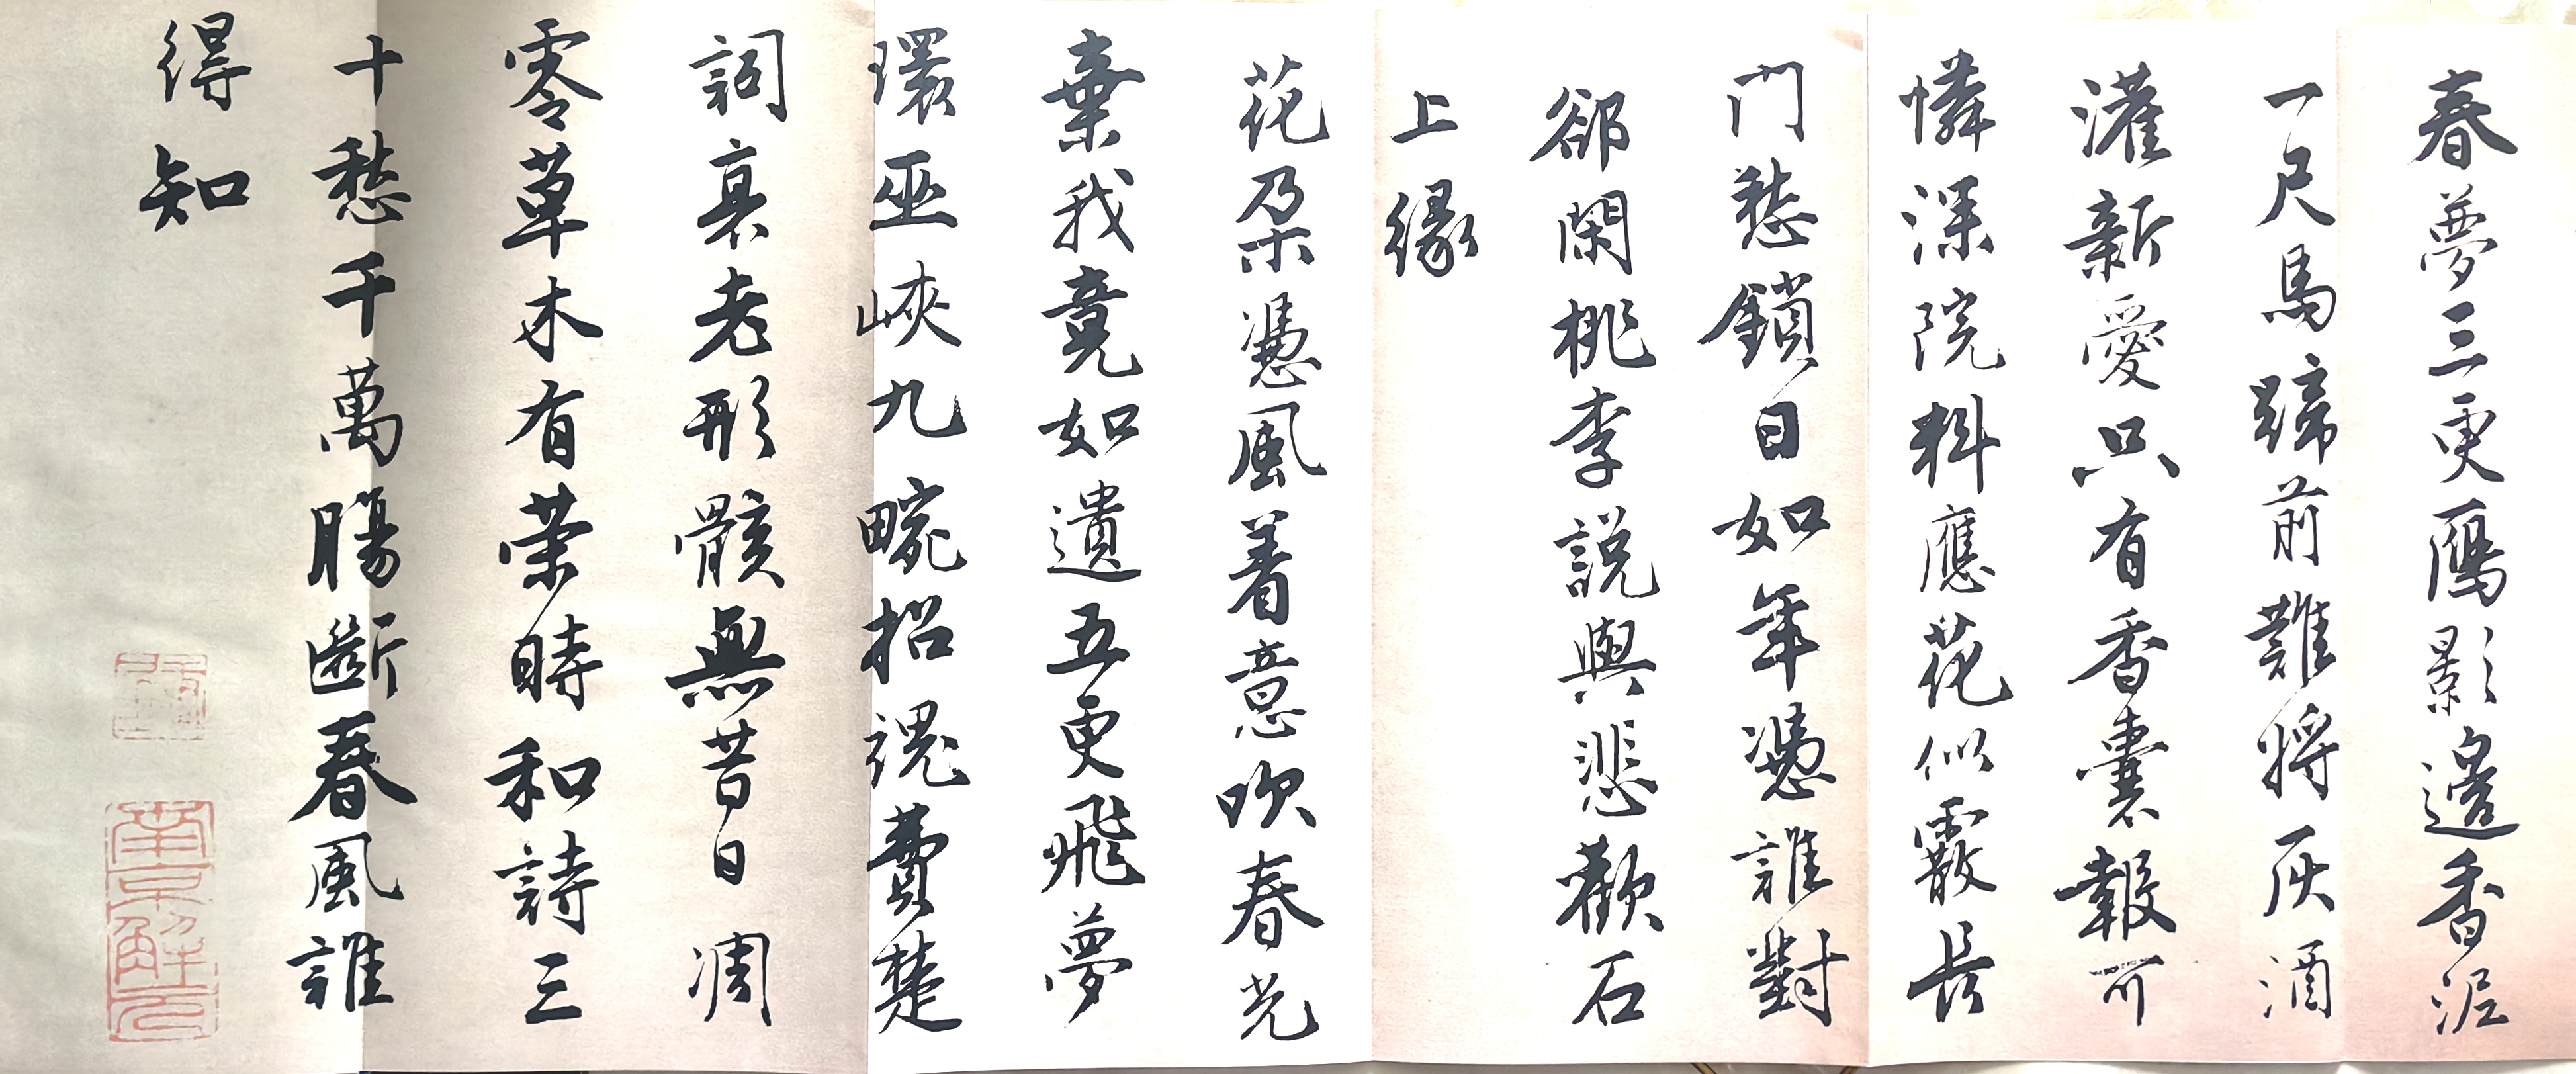 春夢三更鴈影邊香泥
一尺馬蹄前難將灰酒
灌新愛只有香囊報可
憐深院料應花似霰長
門愁鎖日如年憑誰對
卻閑桃李說與悲歡石
上緣
花朶憑風着意吹春光
棄我竟如遺五更飛夢
環巫峽九畹招魂費楚
詞衰老形骸無昔日凋
零草木有榮時和詩三
十愁千萬腸斷春風誰
得知
南京解元